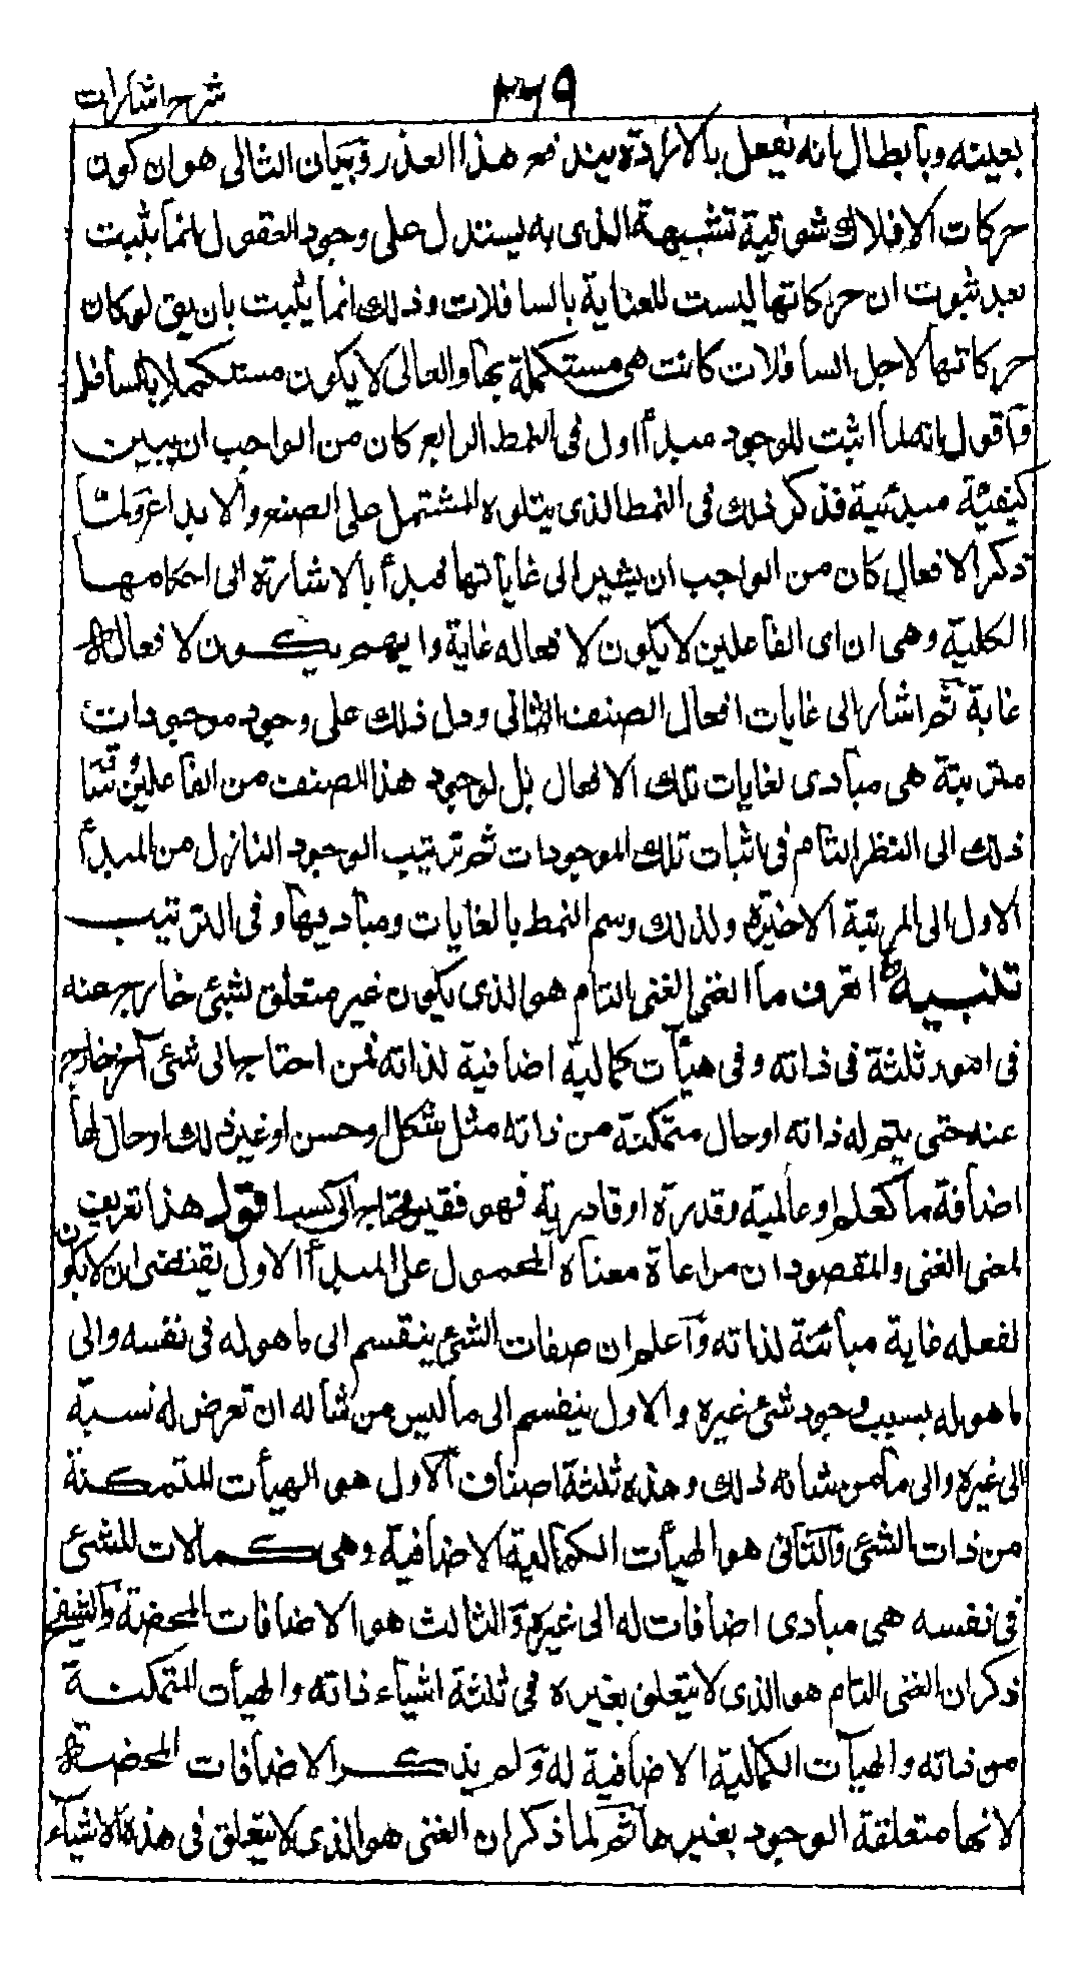 ٣٦٩
شرح اشارات
بعينه وبابطال انه يفعل بالارادة يندفع هذا العذر وبيان الثالى هو ان كون
حركات الافلاك شوقية تشبيهة الذى به يستدل على وجود العقول انما يثبت
بعد ثبوت ان حركاتها ليست للعناية بالسافلات وذلك انما يثبت بان يق لو كان
حركاتها لاجل السافلات كانت هى مستكملة بها والعالى لا يكون مستكملا بالسافل
وآقول انه لما اثبت للوجود مبدأ اول فى النمط الرابع كان من الواجب ان يبين
كيفيته مبدئية فذكر ذلك فى النمط الذى يتلوه المشتمل على الصنع والابداع ولما
ذكر الافعال كان من الواجب ان يشير الى غاياتها فبدأ بالاشارة الى احكامها
الكلية وهى ان اى الفاعلين لا يكون لافعاله غاية وايهم يكون لافعاله
غاية ثم اشار الى غايات افعال الصنف الثانى ودل ذلك على وجود موجودات
مترتبة هى مبادى لغايات تلك الافعال بل لوجود هذا الصنف من الفاعلين فساق
ذلك الى النظر التام فى اثبات تلك الموجودات ثم ترتيب الوجود النازل من المبدأ
الاول الى المرتبة الاخيرة ولذلك وسم النمط بالغايات ومباديها وفى الترتيب
تنبيه اتعرف ما الغنى الغنى التام هو الذى يكون غير متعلق بشئ خارج عنه
فى امور ثلثة فى ذاته وفى هيآت كمالية اضافية لذاته فمن احتاج الى شئ آخر خارج
عنه حتى يتم له ذاته او حال متمكنة من ذاته مثل شكل او حسن او غير ذلك او حال لها
اضافة ما كعلم او عالمية وقدرة او قادرية فهو فقير محتاج الى كسب اقول هذا تعريف
لمعنى الغنى والمقصود ان مراعاة معناه المحمول على المبدأ الاول يقتضى ان لا يكون
لفعله غاية مبائنة لذاته وآعلم ان صفات الشئ ينقسم الى ما هو له فى نفسه والى
ما هو له بسبب وجود شئ غيره والاول ينقسم الى ما ليس من شانه ان تعرض له نسبة
الى غيره والى ما من شانه ذلك وهذه ثلثة اصناف الاول هو الهيأت المتمكنة
من ذات الشئ والثانى هو الهيأت الكمالية الاضافية وهى كمالات للشئ
فى نفسه هى مبادى اضافات له الى غيره والثالث هو الاضافات المحضة والشيخ
ذكر ان الغنى التام هو الذى لا يتعلق بغيره فى ثلثة اشياء ذاته والهيأت المتمكنة
من ذاته والهيآت الكمالية الاضافية له ولم يذكر الاضافات المحضة
لانها متعلقة الوجود بغيرها ثم لما ذكر ان الغنى هو الذى لا يتعلق فى هذه الاشياء